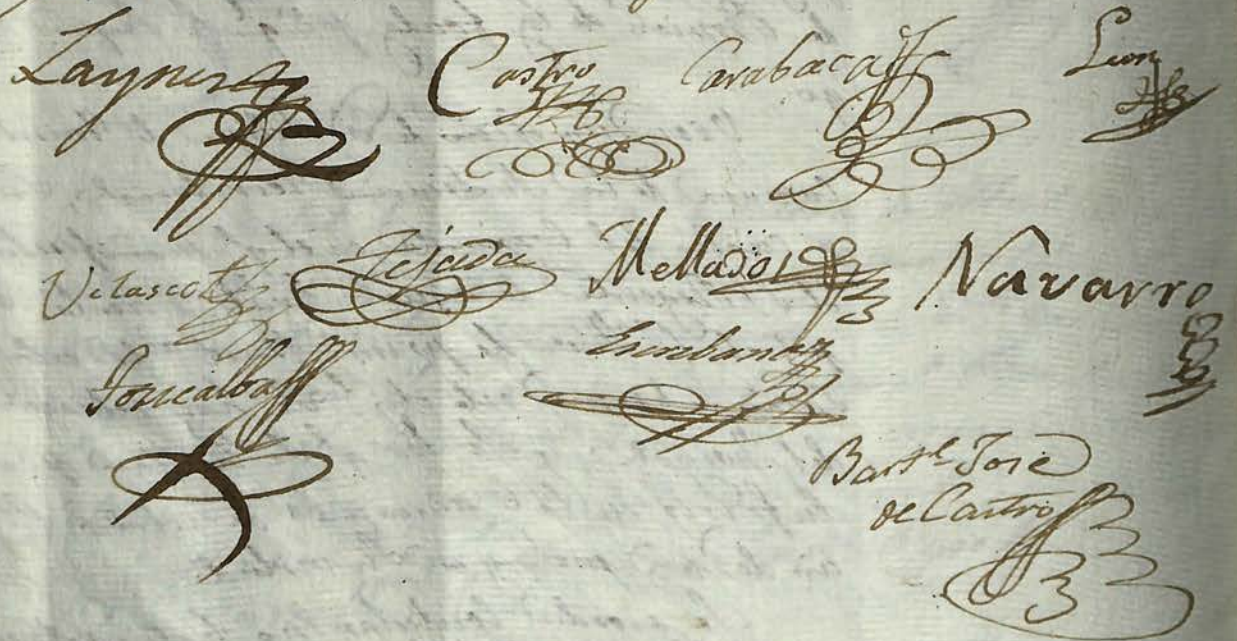 Laynez Castro Carabaca Leon
Velasco Tejada Mellado Navarro
Escribano
Bart.e Jose
de Castro